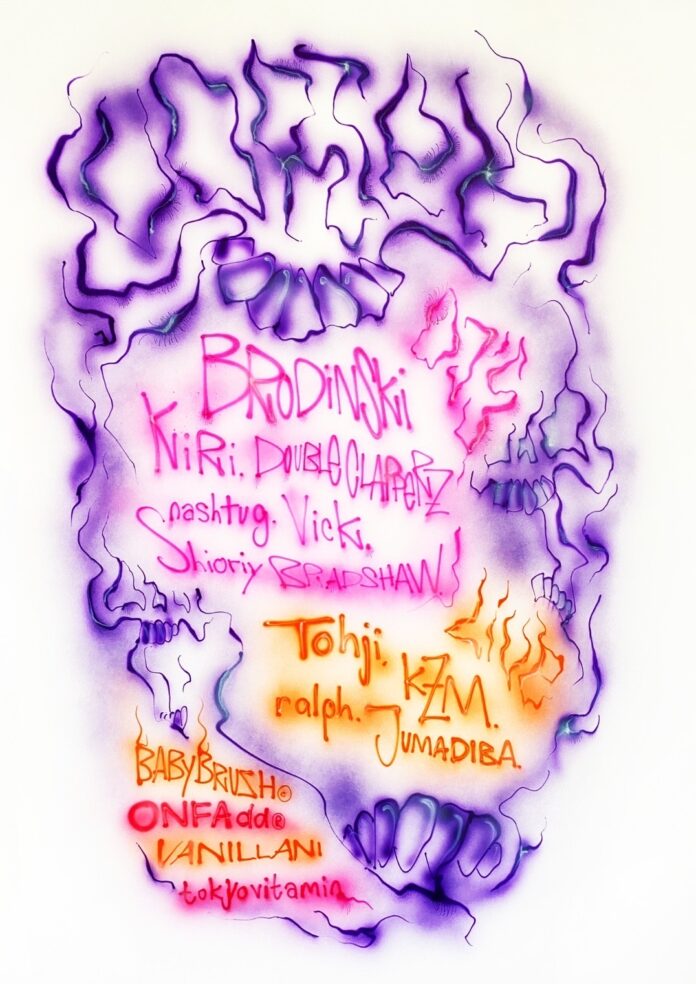 BRODiNSKi
KiRi. DOUBLECLAPPERZ
nashtug. Vick.
Shioriy BRADSHAW.
LIVE
Tohji. KZM.
ralph. JUMADIBA.
BABYBRUSH©
ONFAdd®
VANILLANI
tokyovitamin